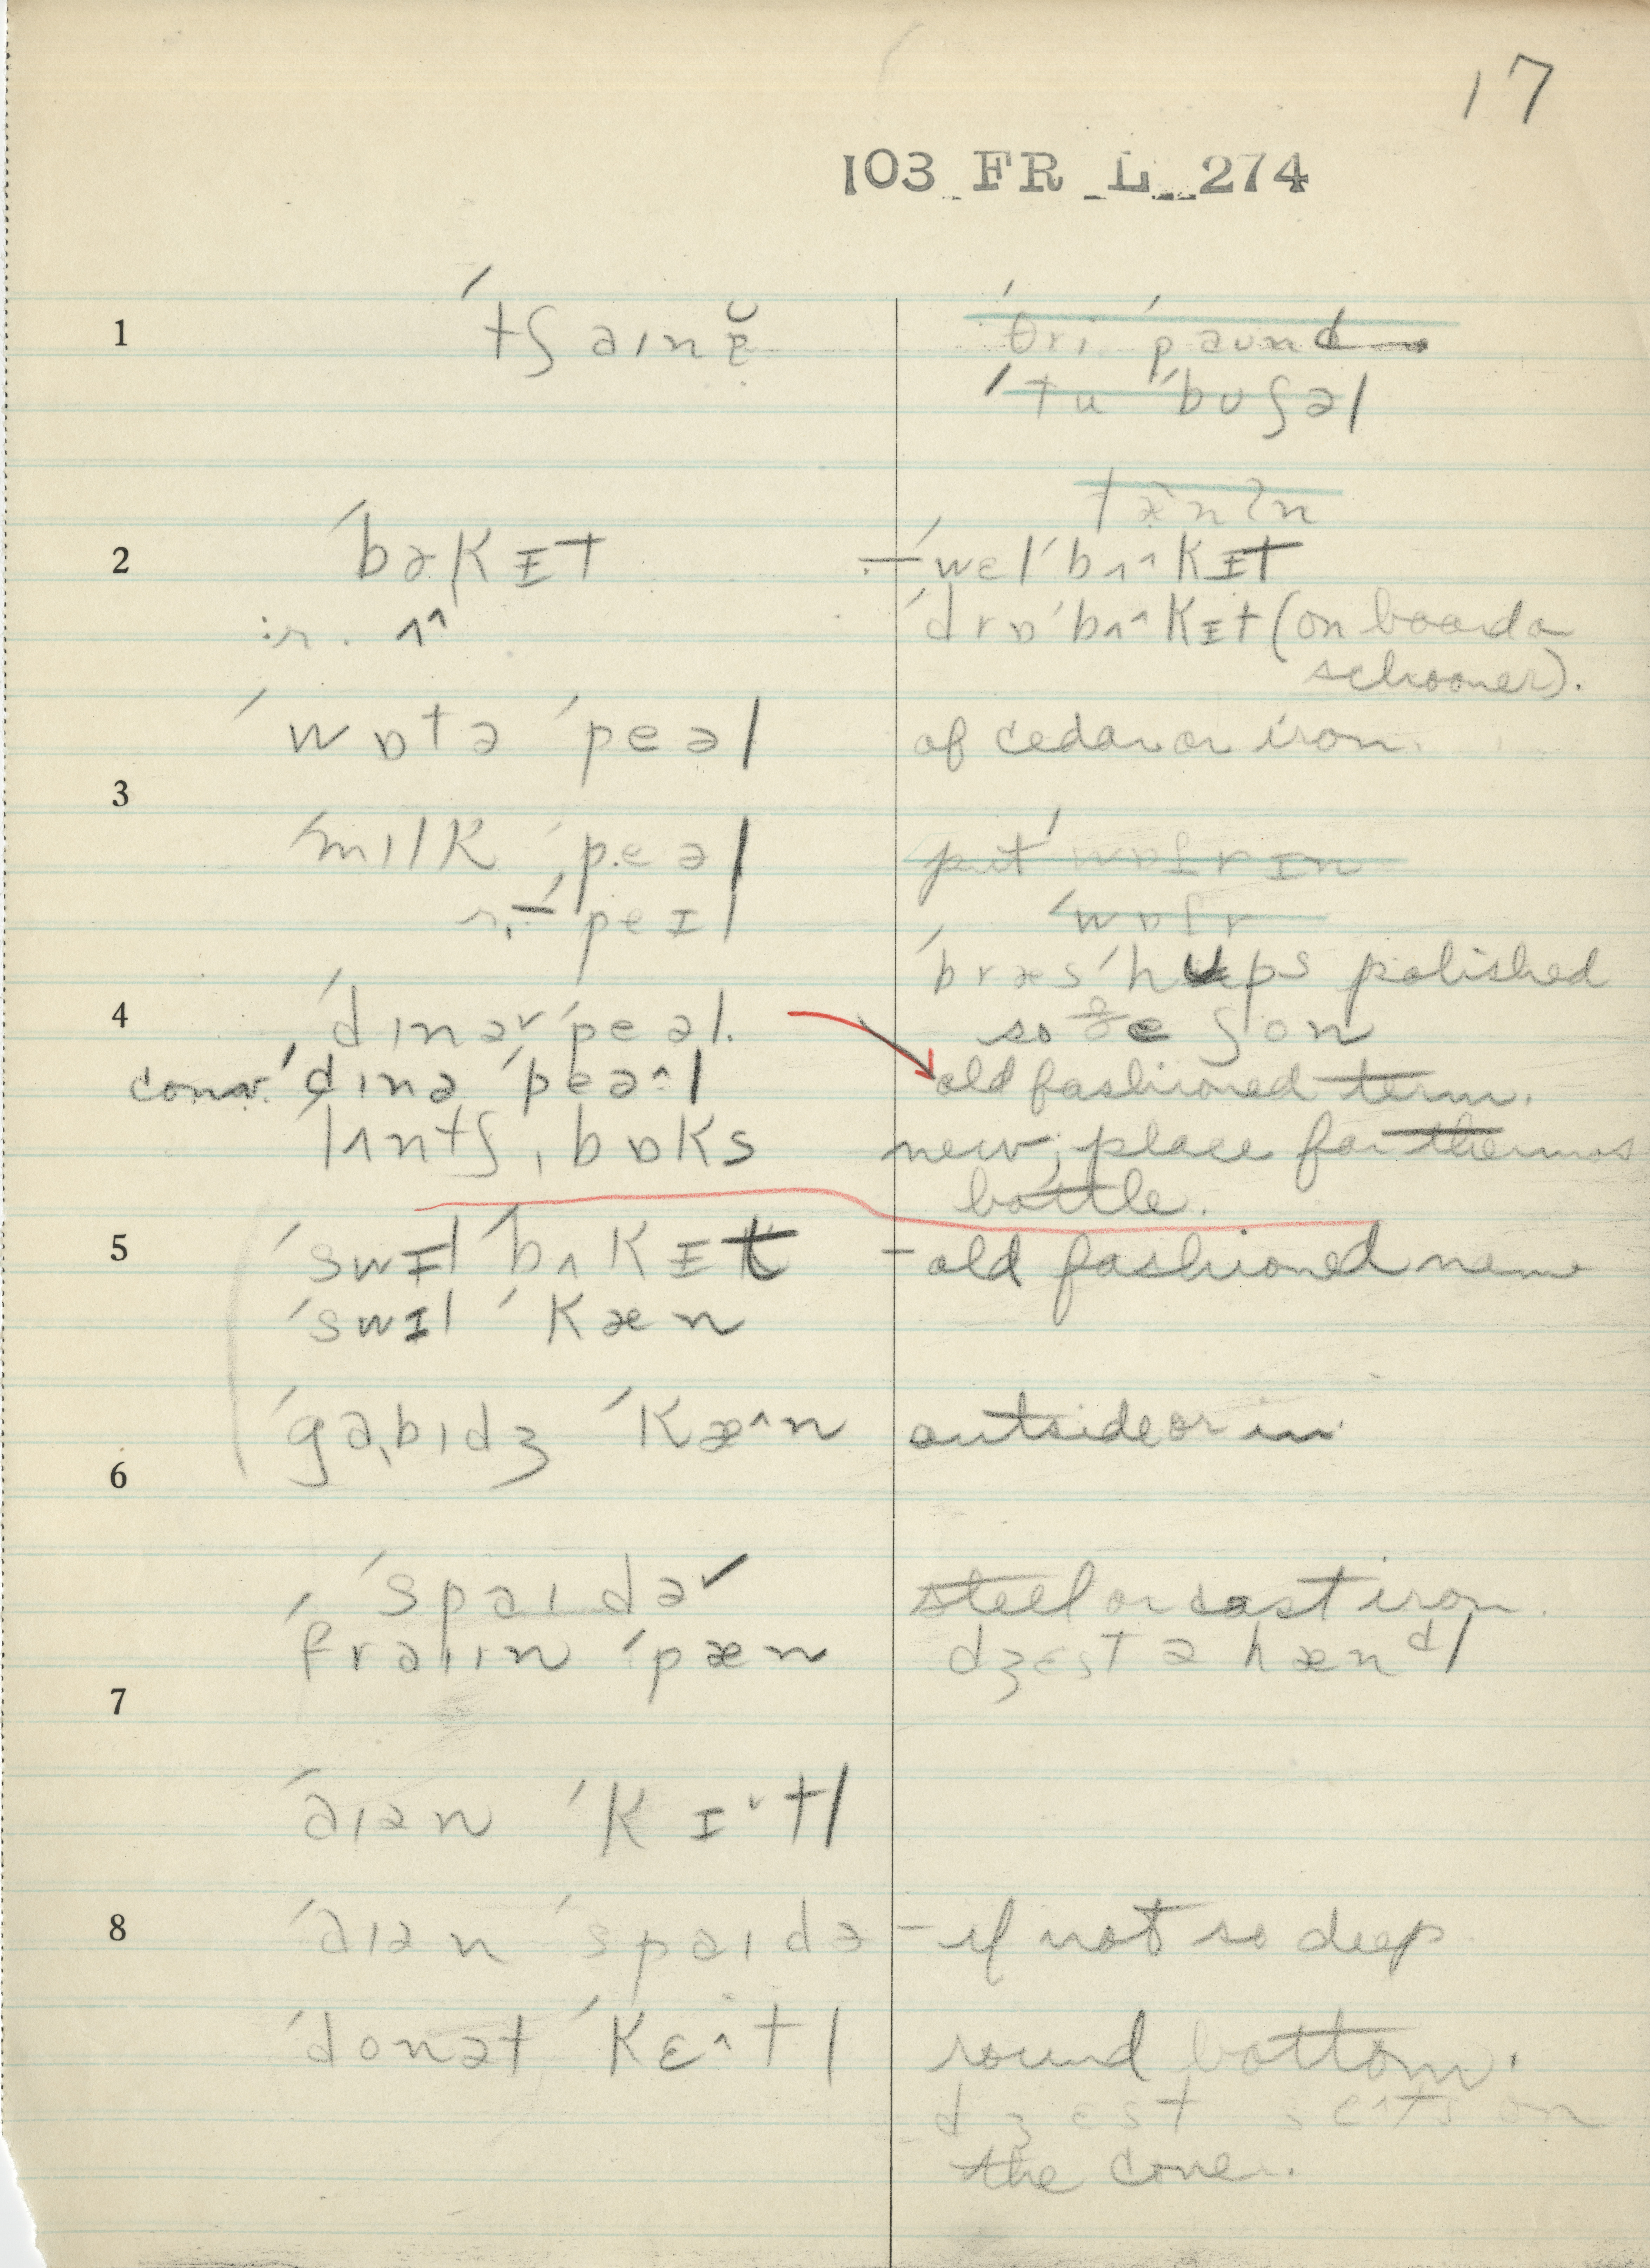 17
103 FR L 274
1 ˈtʃaɪnɐ̆ ˈθri ˈpaund
ˈtu ˈbuʃəl
tæ̀nʔn
2 ˈbəkɪt – ˈwɛlˈbʌ^kɪt
:r. ʌ^ ˈdrɒˈbʌ^kɪt (on board a
schooner).
ˈwɒtə ˈpeəl of cedar or iron.
3
ˈmɪlk ˈpeəl put ˈwɒtr ɪn
r. – ˈpeɪl ˈwɒtr
ˈbræsˈhups polished
4 ˈdɪnəˇˈpeəl. so ðe ʃon
conv. ˈdɪnə ˈpeə^l old fashioned term.
ˈlʌntʃˌbɒks new, place for thermos
bottle.
5 ˈswɪlˈbʌkɪt – old fashioned name
ˈswɪl ˈkæn
ˈgabɪdʒ ˈkæ^n outside or in
6
ˈspaɪdəˇ steel or cast iron.
ˈfraɪɪn ˈpæn dʒɛst ə hændl
7
ˈaɪən ˈkɪˇtl
8 ˈaɪən ˈspaɪdə – if not so deep
ˈdonət ˈkɛ^tl round bottom.
dʒɛst sɛ^ts on
the cover.